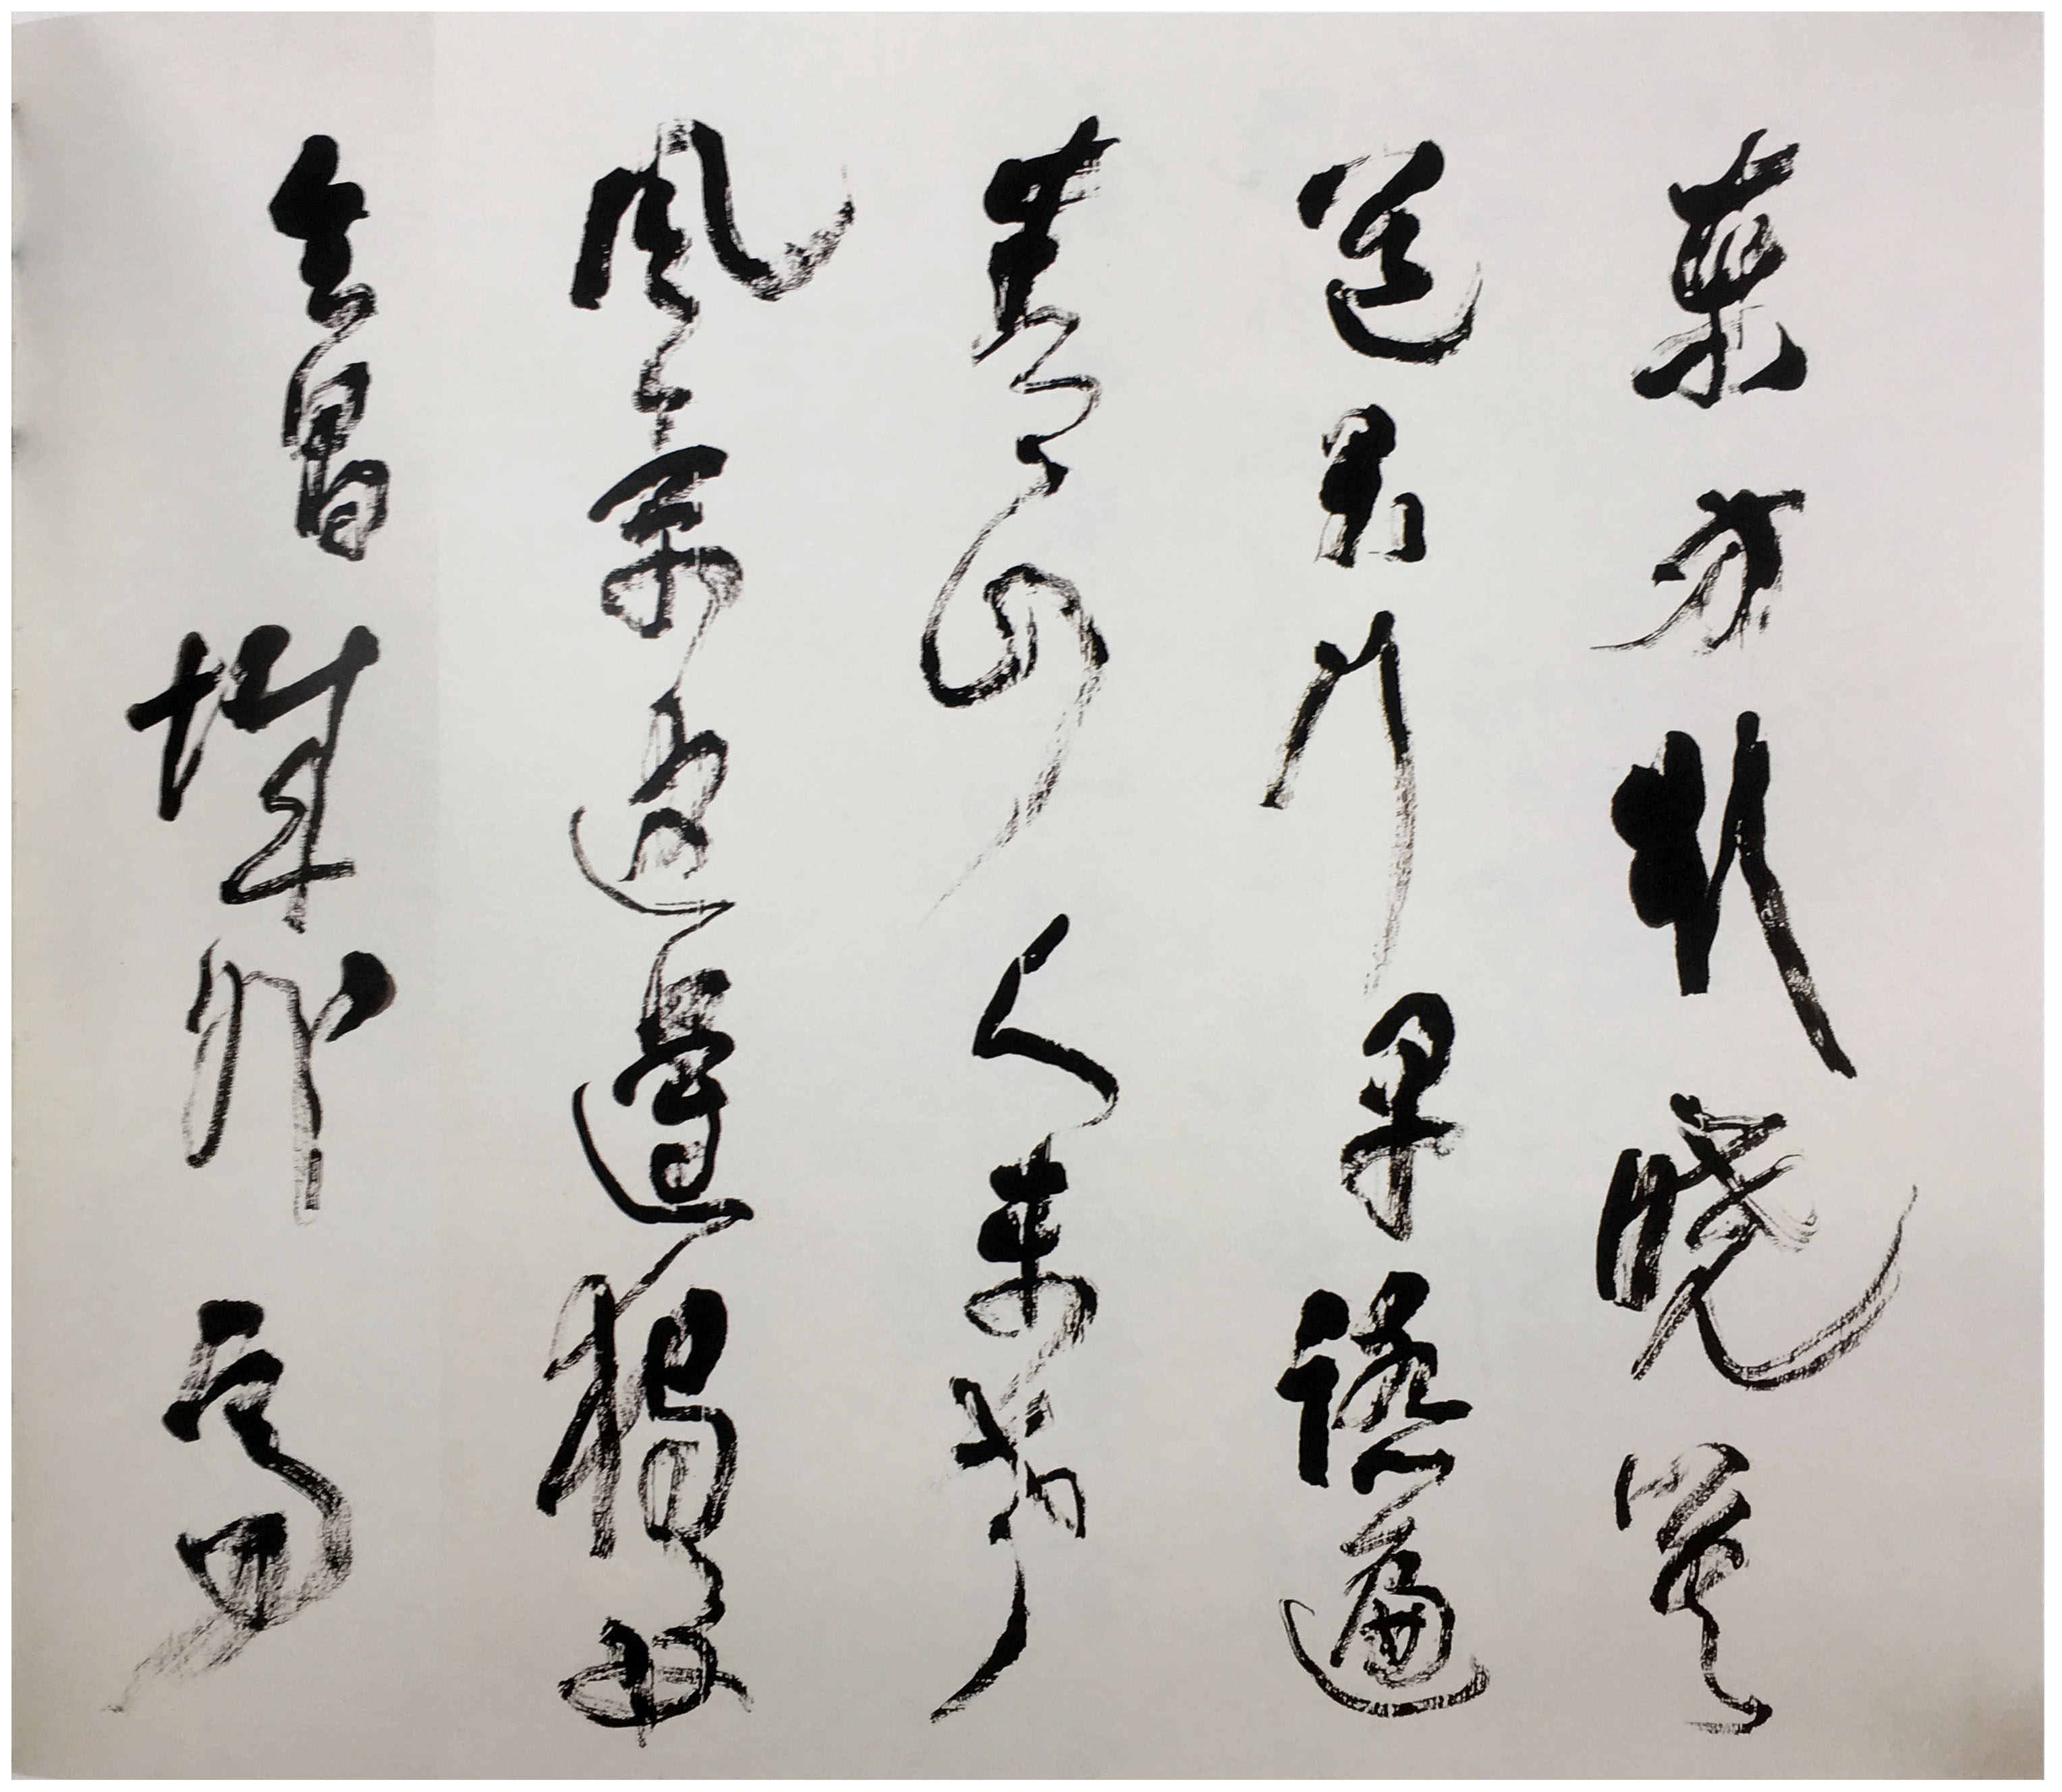 東方欲曉莫
道君行早踏遍
青山人未老
風景這邊獨好
会昌城外高